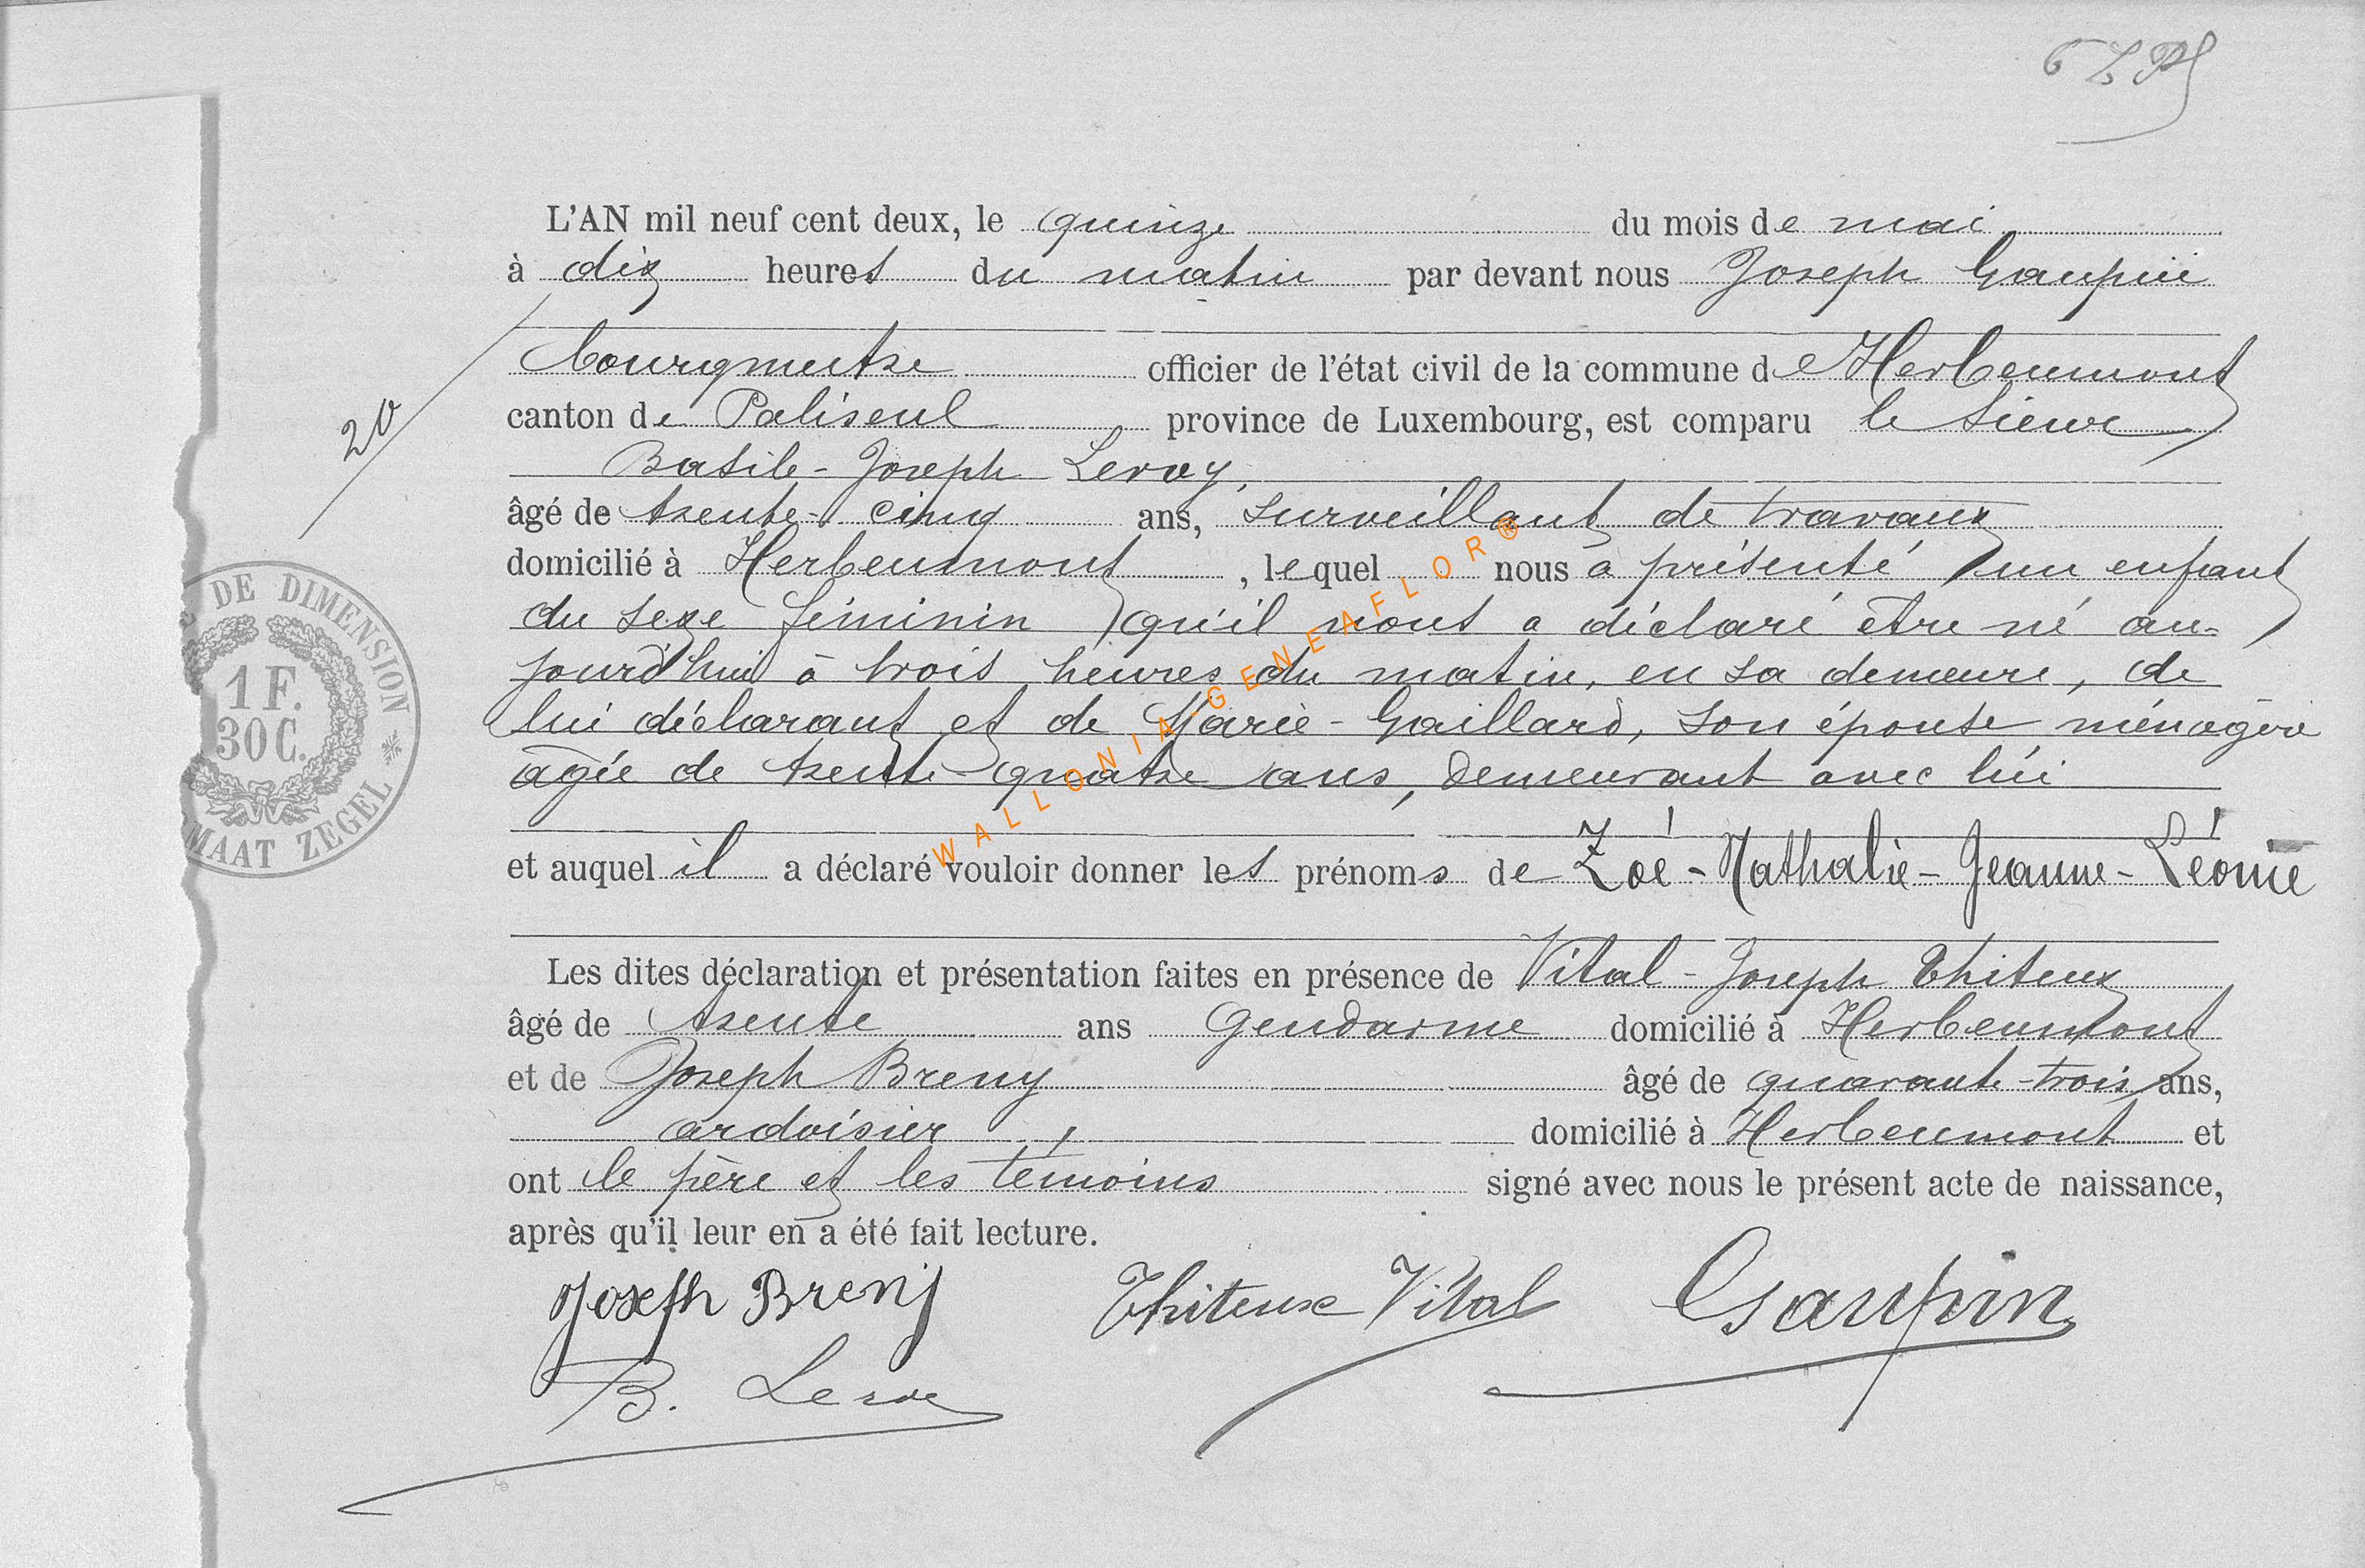 L'AN mil neuf cent deux, le quinze du mois de mai
à dix heures du matin par devant nous Joseph Gaupin
bourgmestre officier de l'état civil de la commune de Herbeumont
canton de Paliseul province de Luxembourg, est comparu le sieur
20
Basile-Joseph Leroy,
âgé de trente-cinq ans, surveillant de travaux
domicilié à Herbeumont, lequel nous a présenté un enfant
du sexe féminin qu'il nous a déclaré être né au-
jourd'hui à trois heures du matin, en sa demeure, de
lui déclarant et de Marie-Gaillard, son épouse ménagère
âgée de trente-quatre ans, demeurant avec lui
et auquel il a déclaré vouloir donner les prénoms de Zoé-Nathalie-Jeanne-Léonie
Les dites déclaration et présentation faites en présence de Vital-Joseph Thiteux
âgé de trente ans Gendarme domicilié à Herbeumont
et de Joseph Breny âgé de quarante-trois ans,
ardoisier, domicilié à Herbeumont et
ont le père et les témoins signé avec nous le présent acte de naissance,
après qu'il leur en a été fait lecture.
Joseph Breny Thiteux Vital Gaupin
B. Leroy
DE DIMENSION
1 F.
30 C.
MAAT ZEGEL
WALLONIA-GENEAFLOR®